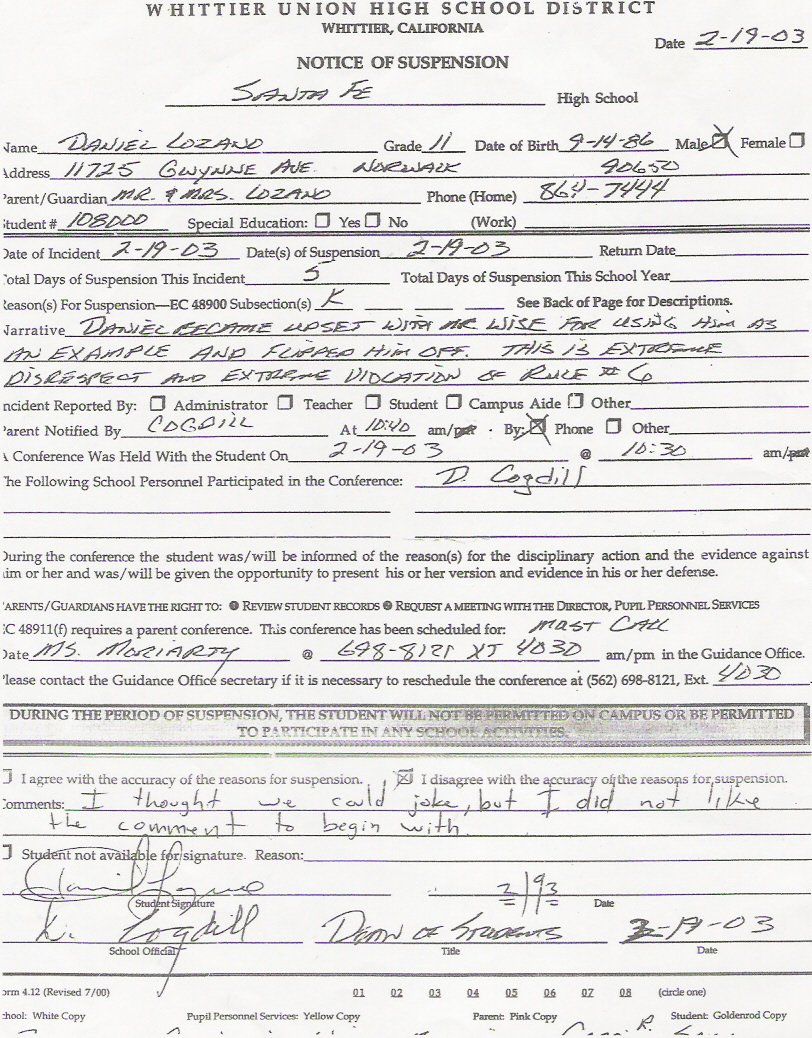 WHITTIER UNION HIGH SCHOOL DISTRICT
WHITTIER, CALIFORNIA
Date 2-19-03
NOTICE OF SUSPENSION
SANTA FE High School
Name DANIEL LOZANO Grade 11 Date of Birth 9-14-86 Male Female
Address 11725 GWYNNE AVE. NORWALK 90650
Parent/Guardian MR. & MRS. LOZANO Phone (Home) 864-7444
Student # 108000 Special Education: Yes No (Work)
Date of Incident 2-19-03 Date(s) of Suspension 2-19-03 Return Date
Total Days of Suspension This Incident 5 Total Days of Suspension This School Year
Reason(s) For Suspension—EC 48900 Subsection(s) K See Back of Page for Descriptions.
Narrative DANIEL BECAME UPSET WITH MR WISE FOR USING HIM AS
AN EXAMPLE AND FLIPPED HIM OFF. THIS IS EXTREME
DISRESPECT AND EXTREME VIOLATION OF RULE # 6
Incident Reported By: Administrator Teacher Student Campus Aide Other
Parent Notified By COGDILL At 10:40 am/pm By: Phone Other
A Conference Was Held With the Student On 2-19-03 @ 10:30 am/pm
The Following School Personnel Participated in the Conference: D. Cogdill
During the conference the student was/will be informed of the reason(s) for the disciplinary action and the evidence against
him or her and was/will be given the opportunity to present his or her version and evidence in his or her defense.
PARENTS/GUARDIANS HAVE THE RIGHT TO: ● REVIEW STUDENT RECORDS ● REQUEST A MEETING WITH THE DIRECTOR, PUPIL PERSONNEL SERVICES
EC 48911(f) requires a parent conference. This conference has been scheduled for: MAST CALL
Date MS. MORIARTY @ 698-8121 XT 4030 am/pm in the Guidance Office.
Please contact the Guidance Office secretary if it is necessary to reschedule the conference at (562) 698-8121, Ext. 4030
DURING THE PERIOD OF SUSPENSION, THE STUDENT WILL NOT BE PERMITTED ON CAMPUS OR BE PERMITTED
TO PARTICIPATE IN ANY SCHOOL ACTIVITIES.
I agree with the accuracy of the reasons for suspension. I disagree with the accuracy of the reasons for suspension.
Comments: I thought we could joke, but I did not like
the comment to begin with.
Student not available for signature. Reason:
Student Signature Date
K. Cogdill DEAN OF STUDENTS 2-19-03
School Official Title Date
Form 4.12 (Revised 7/00) 01 02 03 04 05 06 07 08 (circle one)
School: White Copy Pupil Personnel Services: Yellow Copy Parent: Pink Copy Student: Goldenrod Copy